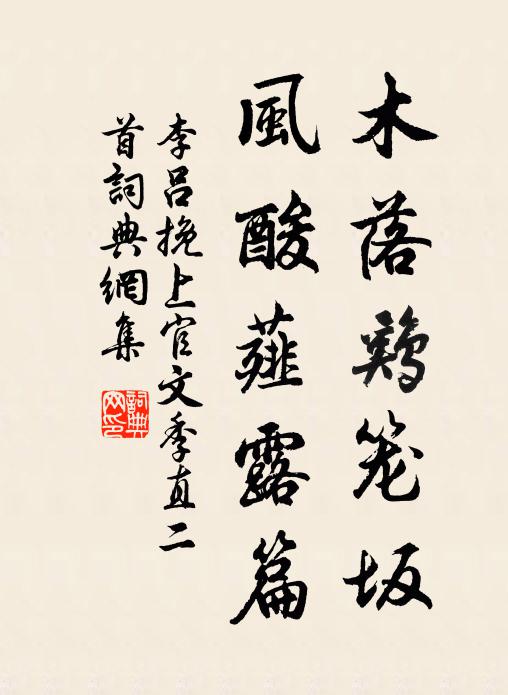 木落鷄笼坂
風酸薤露篇
李吕挽上官文季直二
首詞典網集
詞典网印